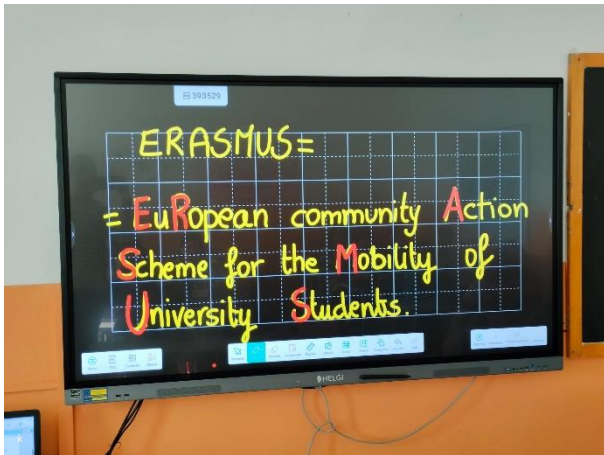 393529
ERASMUS=
= EuRopean community Action
Scheme for the Mobility of
University Students.
HELGI